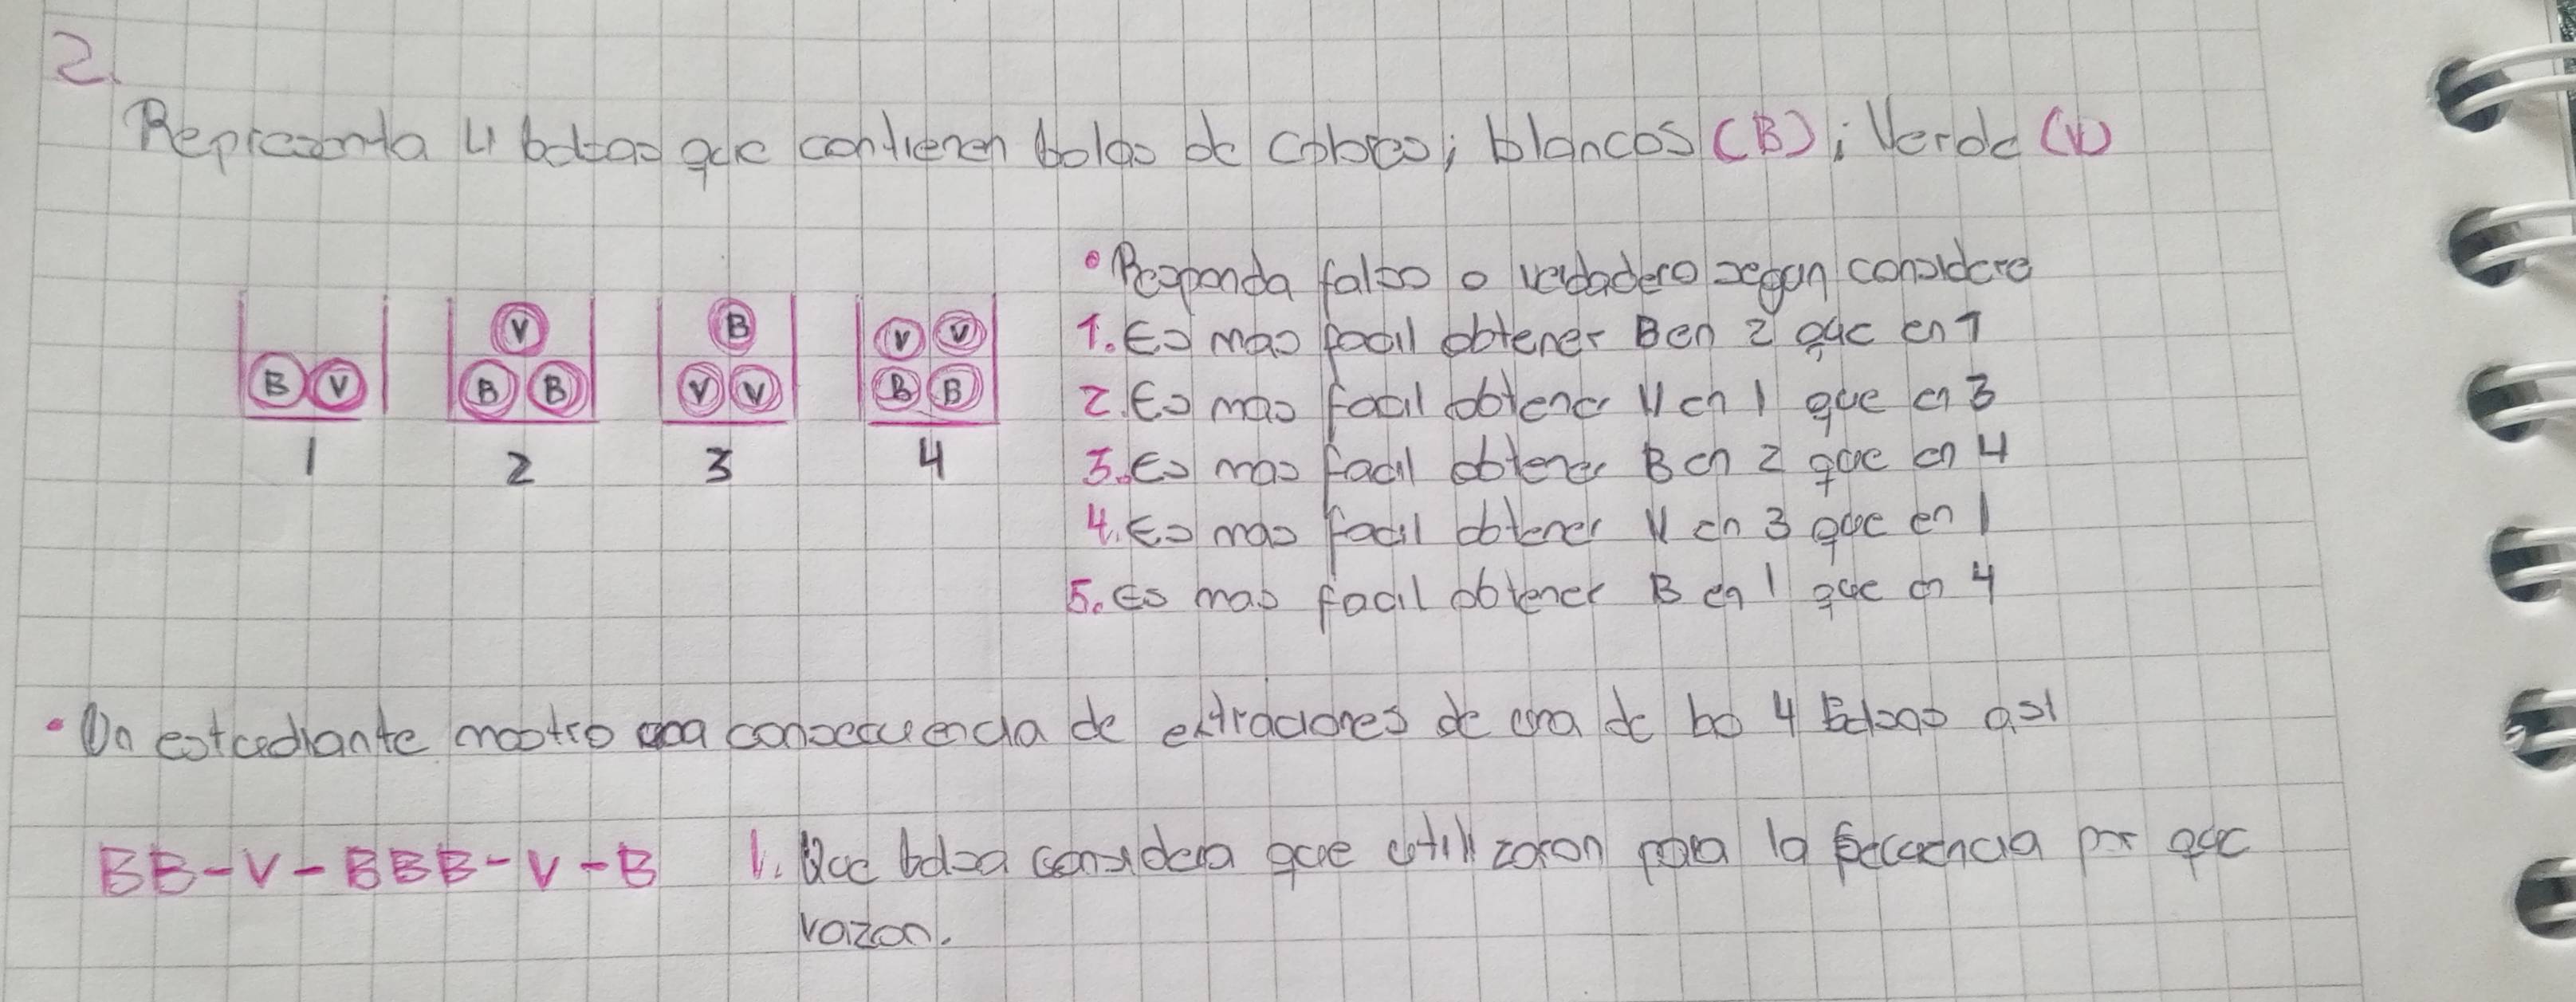 2.
Representa 4 bolsas que contienen bolas de colores; blancos (B); Verde (V)
• Responda falso o verdadero segun considere
V
B
V V
B V
B B
V V
B B
1
2
3
4
1. Es mas facil obtener B en 2 que en 1
2. Es mas facil obtener V en 1 que en 3
3. Es mas facil obtener B en 2 que en 4
4. Es mas facil obtener V en 3 que en 1
5. Es mas facil obtener B en 1 que en 4
• Un estudiante mostro una consecuencia de extraciones de una de las 4 Bolsas asi
BB-V-BBB-V-B
1. Que bolsa considera que utilizaron para la secuencia por que
razon.